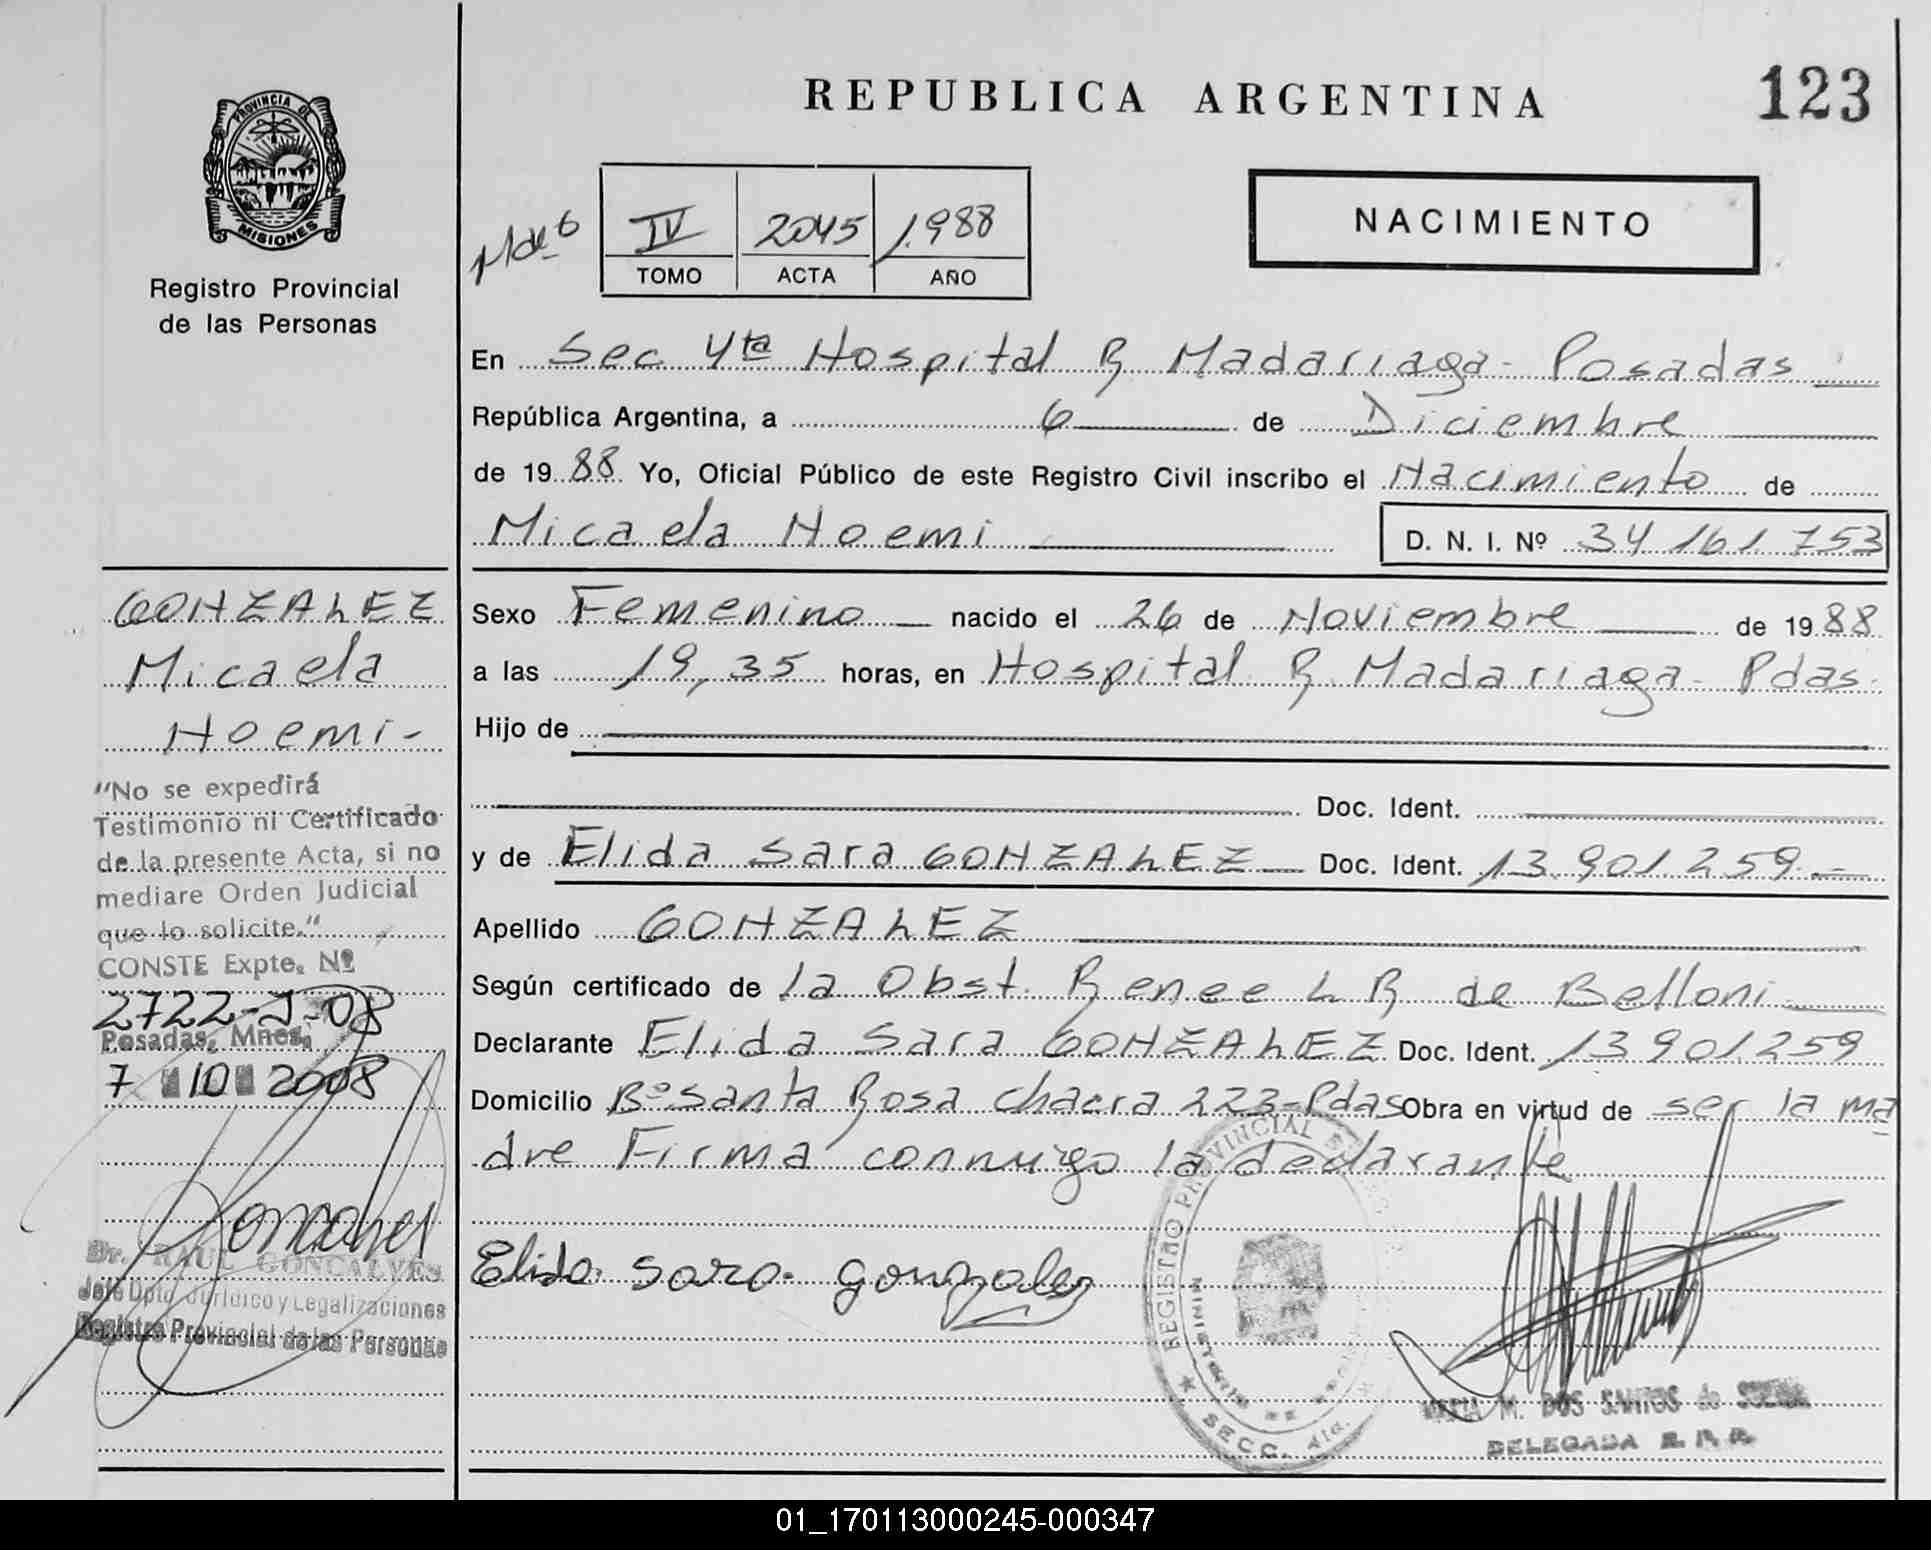 REPUBLICA ARGENTINA
123
PROVINCIA DE
MISIONES
Registro Provincial
de las Personas
IV 2045 1988
TOMO ACTA AÑO
NACIMIENTO
En Sec 4ta Hospital R Madariaga - Posadas
República Argentina, a 6 de Diciembre
de 1988 Yo, Oficial Público de este Registro Civil inscribo el Nacimiento de
Micaela Noemi D. N. I. Nº 34 161.753
Sexo Femenino nacido el 26 de Noviembre de 1988
a las 19,35 horas, en Hospital R. Madariaga - Pdas.
Hijo de
Doc. Ident.
y de Elida Sara GONZALEZ Doc. Ident. 13.901.259.-
Apellido GONZALEZ
Según certificado de la Obst. Renee L R de Belloni
Declarante Elida Sara GONZALEZ Doc. Ident. 13901259
Domicilio Bº Santa Rosa chacra 223-Pdas Obra en virtud de ser la ma
dre Firma conmigo la declarante
Elida Sara Gonzalez
REGISTRO PROVINCIAL
SECC. 4ta.
MARIA M. DOS SANTOS de
DELEGADA R. P. P.
GONZALEZ
Micaela
Noemi-
"No se expedirá
Testimonio ni Certificado
de la presente Acta, si no
mediare Orden Judicial
que lo solicite."
CONSTE Expte. Nº
2722-J-08
Posadas, Mnes,
7 10 2008
Dr. RAUL GONCALVES
Jefe Dpto. Jurídico y Legalizaciones
Registro Provincial de las Personas
01_170113000245-000347